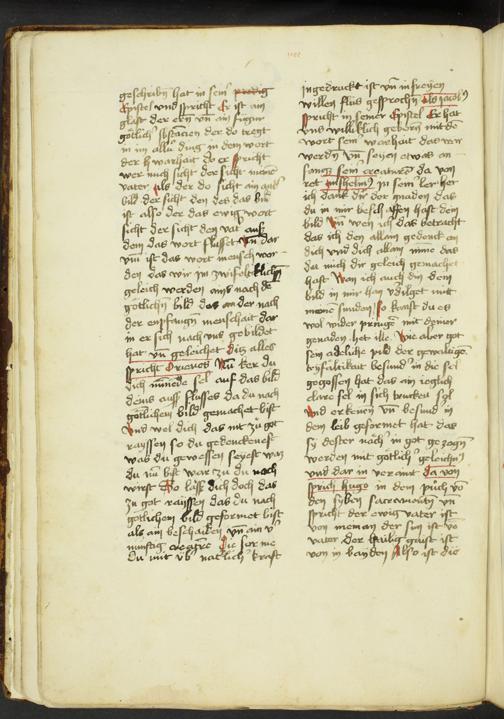 geschriben hat in seiner predig
Epistel vnd spricht Er ist ain
glast der ern vn ain figur
götlich substancien der do tregt
in im allu ding in dem wort
der hwarhait do er spricht
wer mich sicht der sicht mine
vater als der do sicht ain ander
bild der sicht den des das bild
ist also der das ewig wort
sicht der sicht den vat auß
dem das wort flusset Vn dar
vm ist das wort mensch wor
den das wir im zwifelteklichen
geleich werden ains nach de
götlichen bild das ander nach
der enpfangn menschait dar
in er sich nach vns gebildet
hat vn geleichet Ditz alles
spricht Nu ker du
dich mine sel auf das bild
deins auß flusses da du nach
götlichem bild gemachet bist
Vnd wel dich das nit zu got
rayssen so du gedenckenest
was du gewessen seyest wan
du nu bist war zu du nach
wirst So laß dich doch das
zu got raissen das du nach
götlichem bild geformet bist
als am beschaiden vn ain v
nunftig creature Die for me
du mit vs natlich kraft
ingedruckt ist vn in freyen
willen flus gesprochen Als jacob
spricht in seiner Epistel Er hat
vns williklich geborn mit de
wort sein warhait das wir
werden vn seyen etwas an
fang sein creature da von
ret Anshelm zu sein ler her
ich danck dir der gnaden das
du in mir beschaffen hast dein
bild Vn wen ich das betracht
das ich den allain gedenck an
dich vnd dich allain mine das
du mich dir geleich gemachet
hast Wen ich auch din dein
bild in mir han vdilget mit
meine sunden so kanst du es
wol wider pringe mit deiner
genaden het ile Wie aber got
sein adeliche pild der gewaltige
tryfaltikait besund in die sel
gegossen hat das ain ieglich
clare sel in sich trucken sol
Vnd erkenen vn besund in
dem leib geformet hat das
sy dester nacher in got ge zogn
werden mit götlich geleichn
vnd dar in veraint da von
sprich hugo in dem puch vo
den syben sacrementn vn
spricht der ewig vater ist
von nieman der sun ist vo
vater der hailig gaist ist
von in banden Also ist die